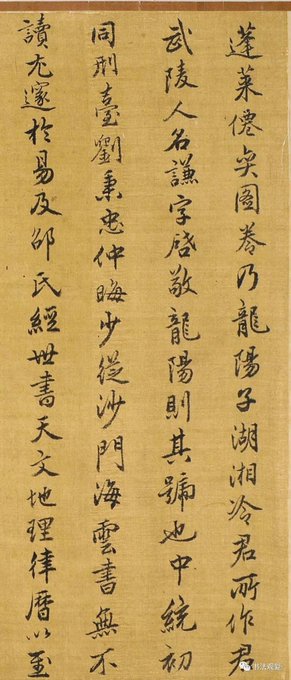 蓬萊僊奕圖卷乃龍陽子湖湘冷君所作君
武陵人名謙字啓敬龍陽則其號也中統初
同刑臺劉秉忠仲晦少從沙門海雲書無不
讀尤邃於易及邵氏經世書天文地理律曆以至
书法观复